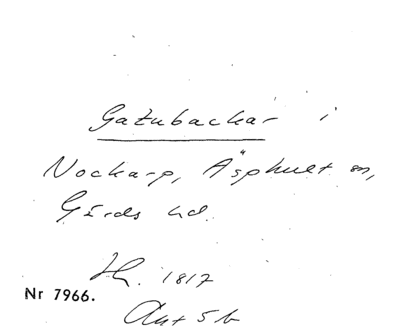 Gatubackar i
Nockarp, Äsphult sn,
Gärds hd.
1817
Nr 7966.
Akt 5 b